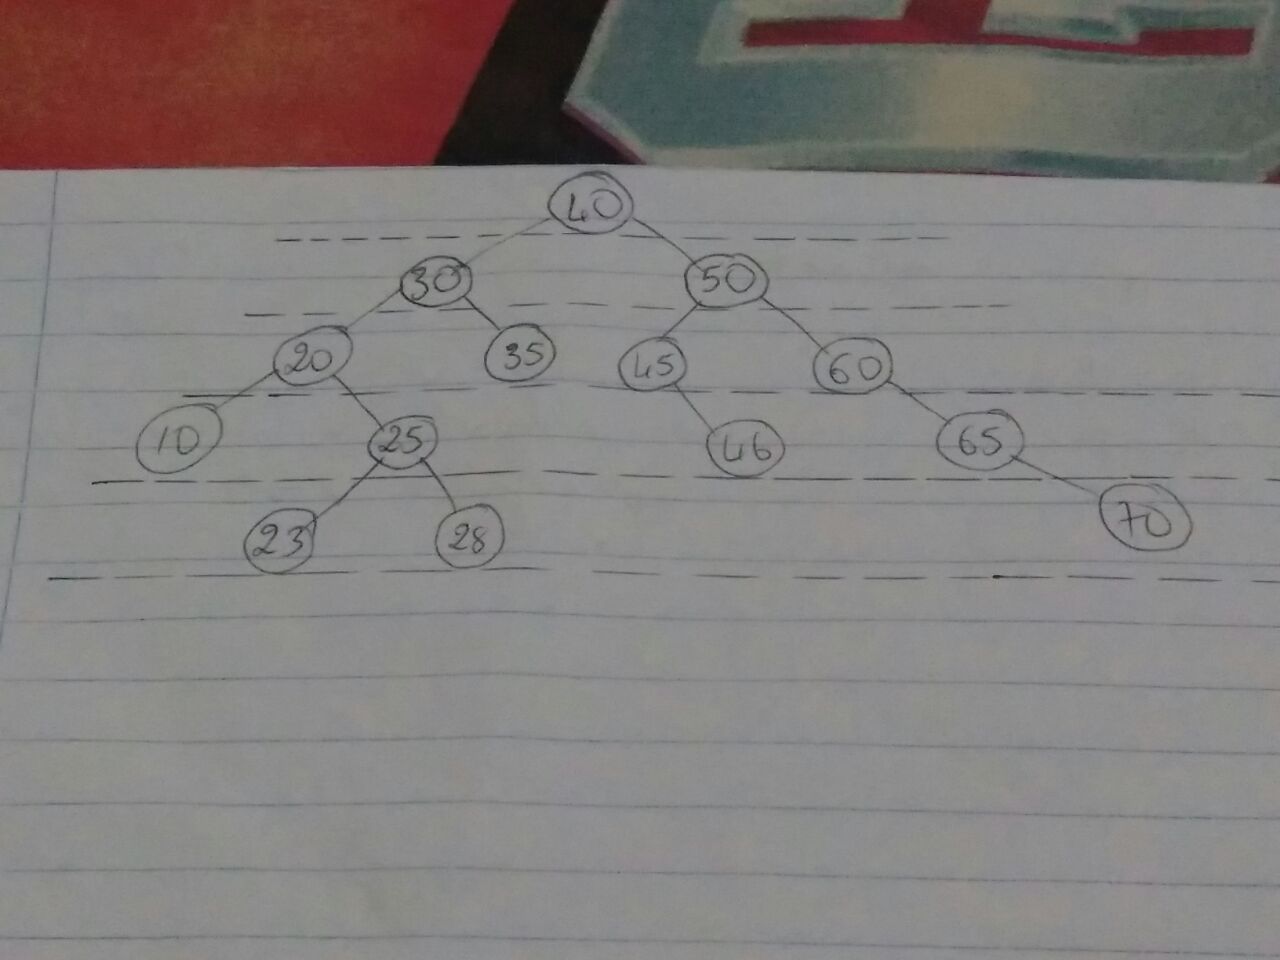 40
30 50
20 35 45 60
10 25 46 65
23 28 70